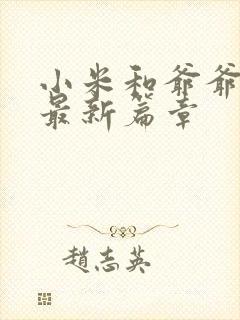 小米和爷爷
最新篇章
趙志英